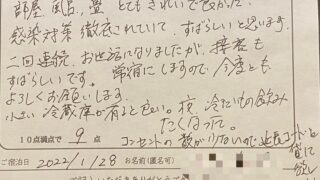 部屋、風呂、畳 とてもきれいで良かった。
感染対策 徹底されていて、すばらしいと思います。
二回連続、お世話になりましたが、接客も
すばらしいです。常宿にしますので、今度とも
よろしくお願いします
小さい冷蔵庫が有ると良い。夜、冷たいもの飲み
たくなって。
10点満点で 9 点
コンセントの数が少ないので、延長コード
ご宿泊日 2022/1/28 お名前(匿名可)